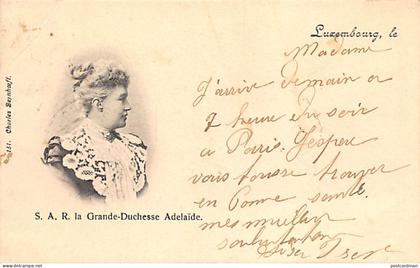 Luxembourg, le
Madame
J'arrive demain a
7 heure du soir
a Paris. J'espere
vous trouver
en bonne santé
mes
S. A. R. la Grande-Duchesse Adelaïde.
121. Charles Bernhoeft.
postcardman